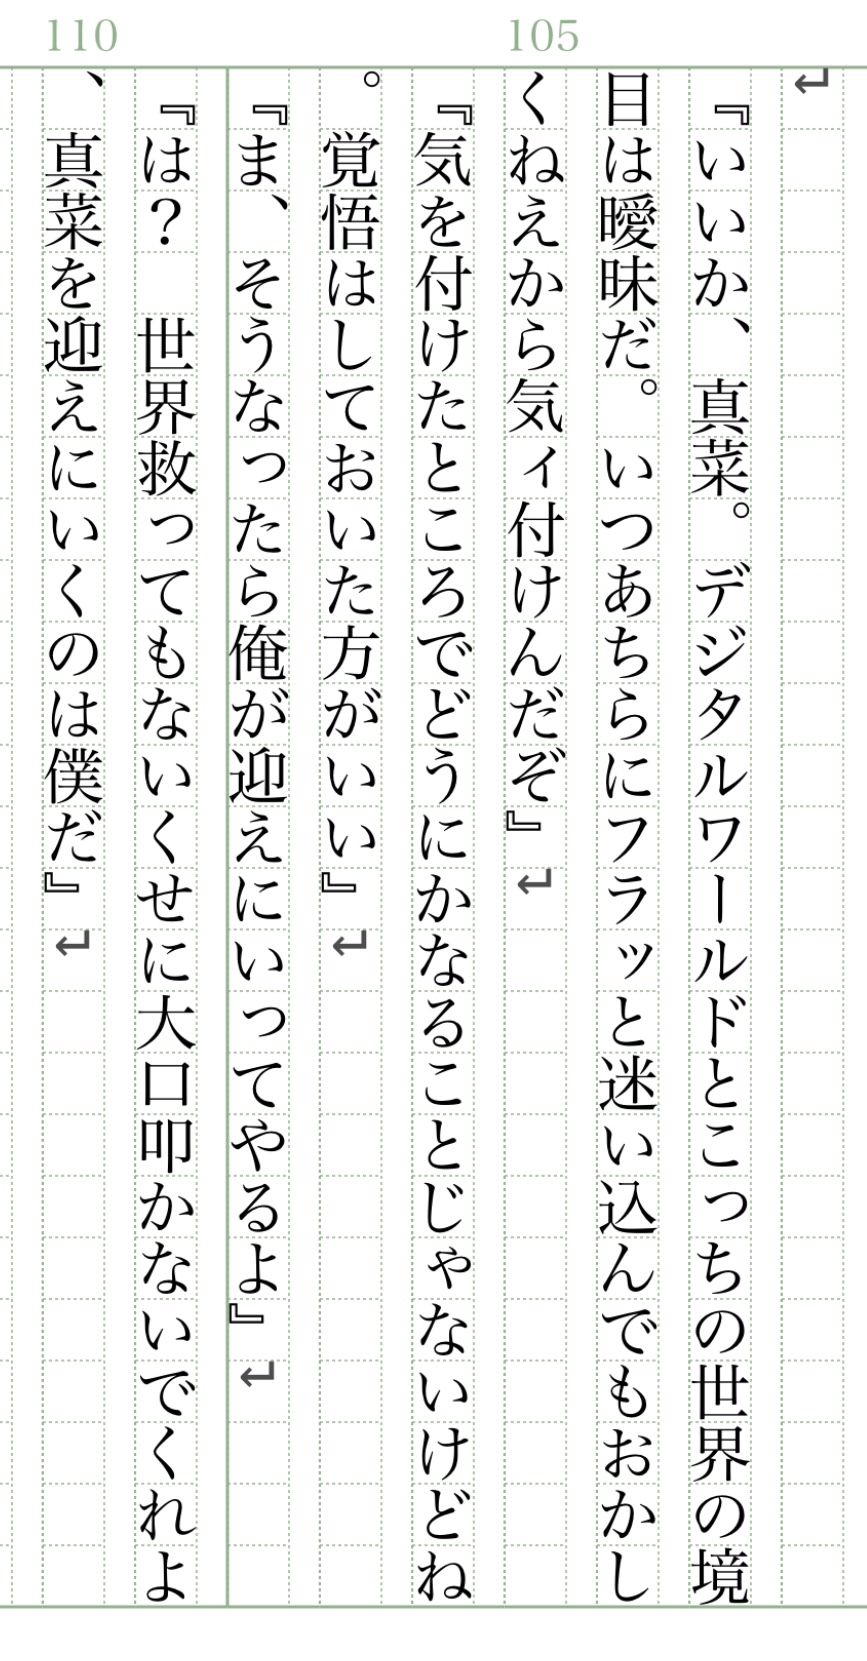 110
105
↵
『いいか、真菜。デジタルワールドとこっちの世界の境
目は曖昧だ。いつあちらにフラッと迷い込んでもおかし
くねえから気ィ付けんだぞ』↵
『気を付けたところでどうにかなることじゃないけどね
。覚悟はしておいた方がいい』↵
『ま、そうなったら俺が迎えにいってやるよ』↵
『は？　世界救ってもないくせに大口叩かないでくれよ
、真菜を迎えにいくのは僕だ』↵